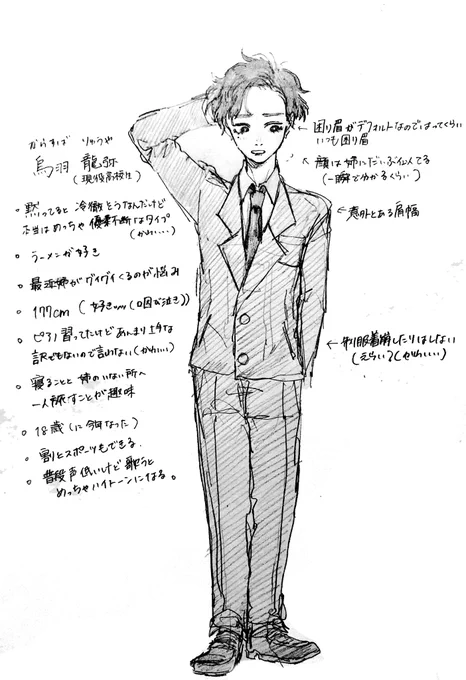 からすば りゅうや
烏羽 龍弥
(現役高校生)
黙ってると 冷徹そうなんだけど
本当はめっちゃ優柔不断なタイプ
(かわいい…)
ラーメンが好き
最近姉がグイグイくるのが悩み
177cm (好きwww (0回が泣き))
ピアノ習ってたけどあんまり上手な
訳でもないので言わない(かわいい)
寝ることと 姉のいない所へ
一人旅することが趣味
18歳(に今年なった)
割とスポーツもできる.
普段声低いけど歌うと
めっちゃハイトーンになる。
← 困り眉がデフォルトなので
いつも困り眉
← 顔は姉にだいぶ似てる
(一瞬で分かるくらい)
← 意外とある肩幅
← 制服着崩したりはしない
(えらい?(かわいい)